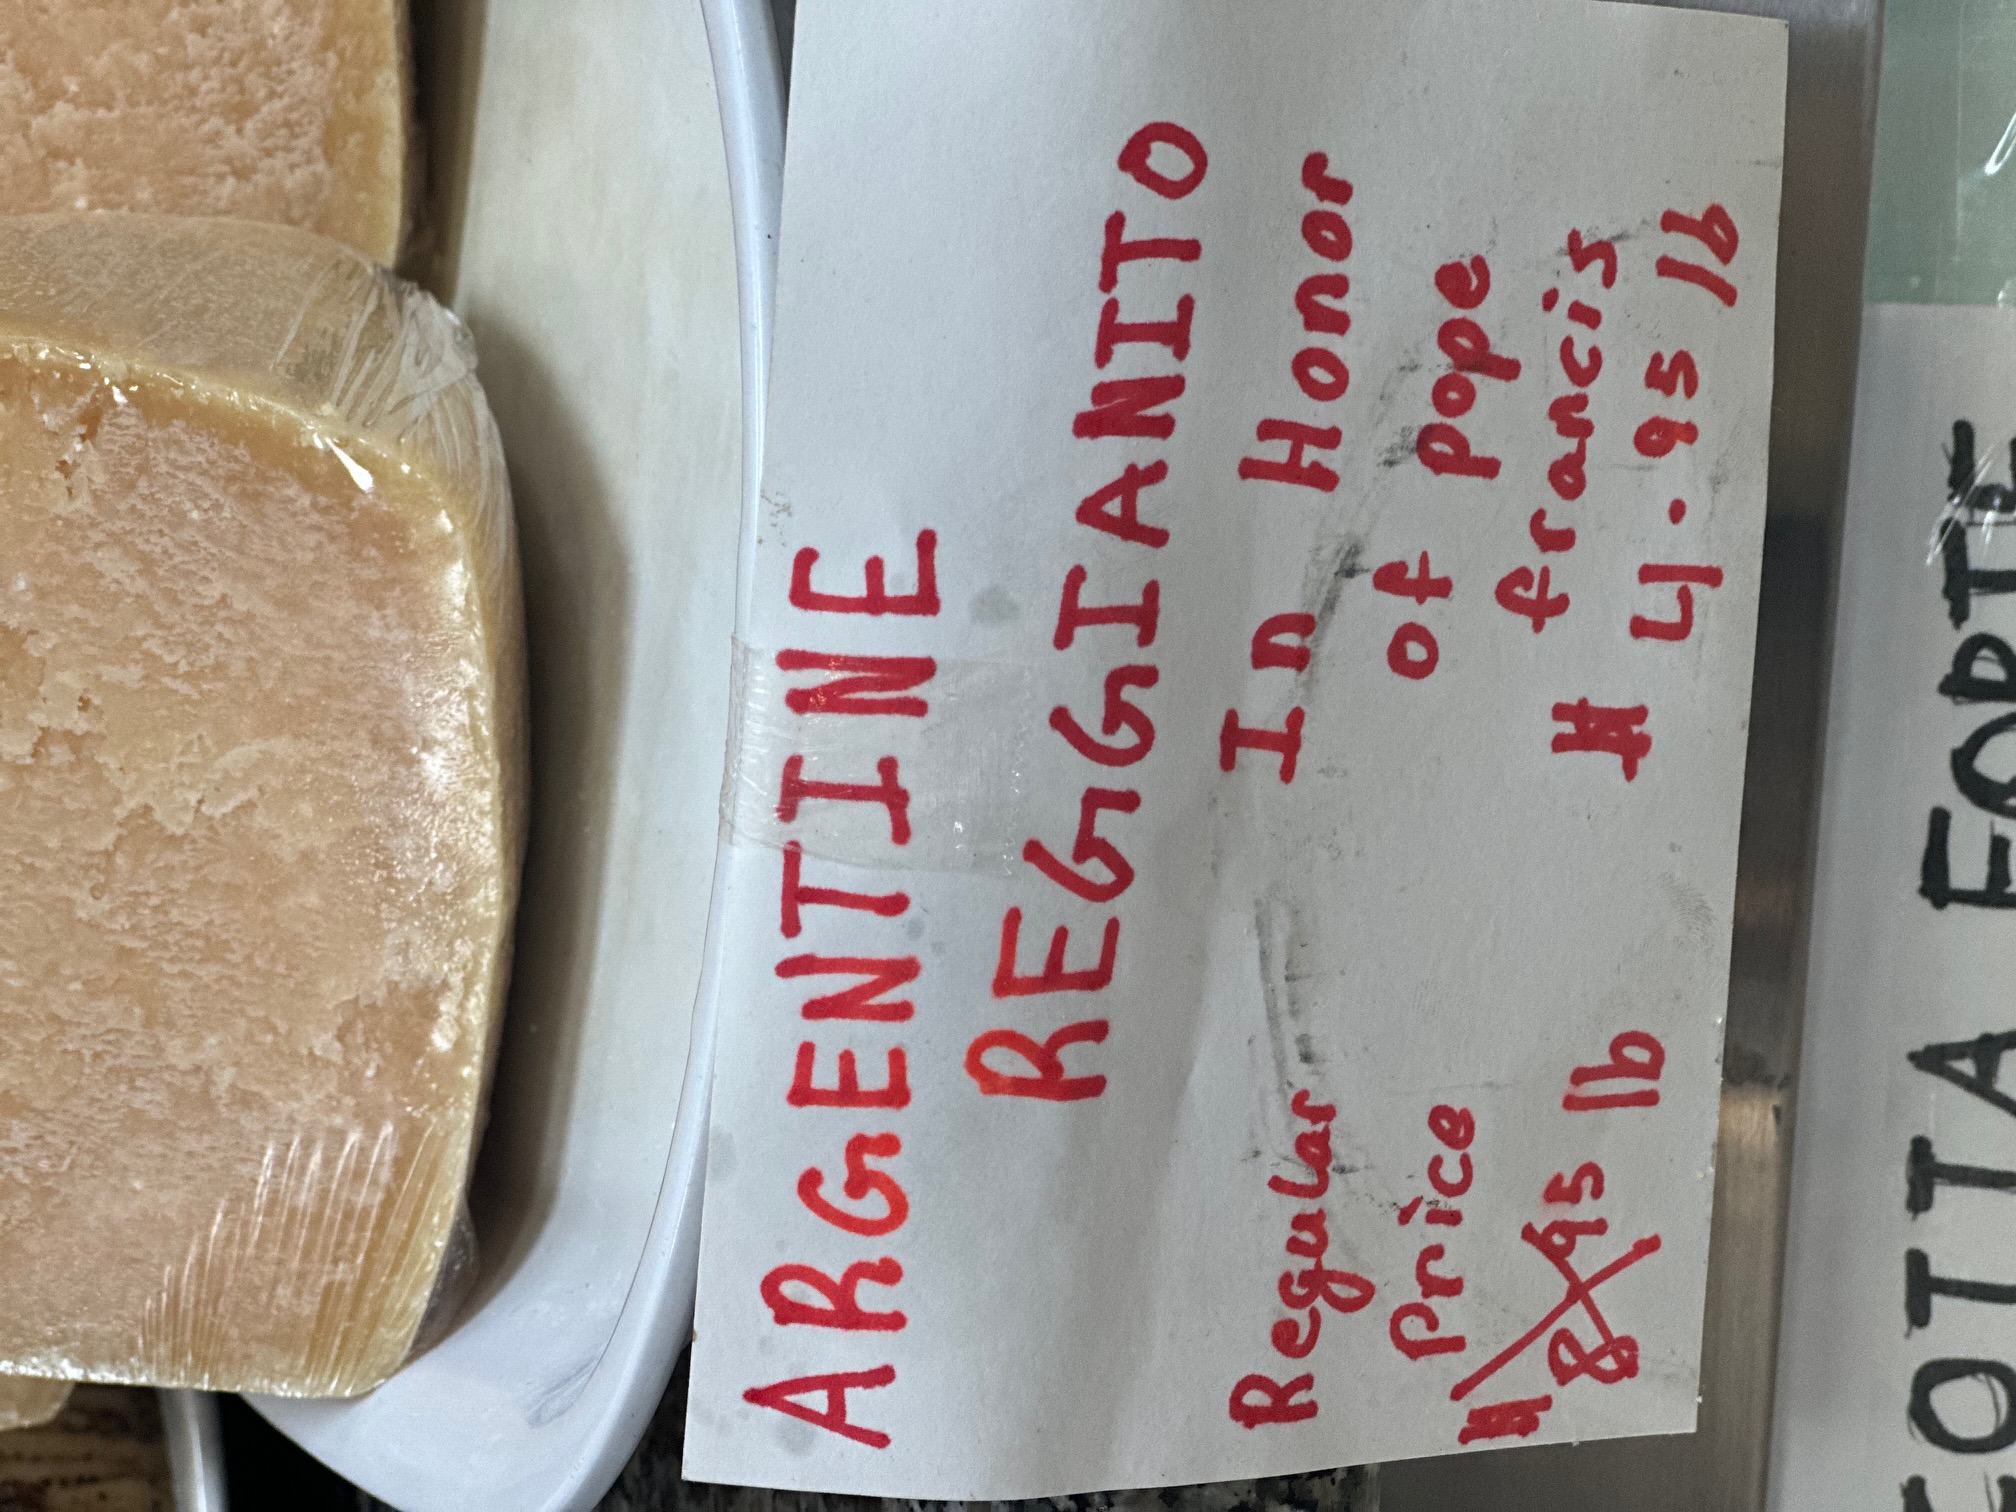 ARGENTINE
REGGIANITO
In Honor
of pope
francis
# 4.95 lb
Regular
Price
# 8 95 lb
FORTE